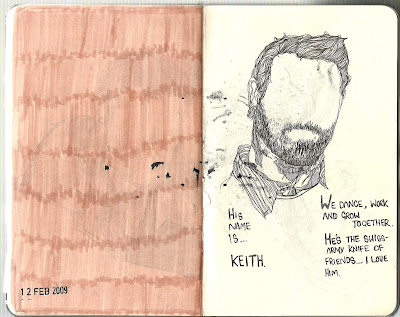 12 FEB 2009
HIS
NAME
IS...
KEITH.
WE DANCE, WORK
AND GROW
TOGETHER.
HE'S THE SWISS-
ARMY KNIFE OF
FRIENDS... I LOVE
HIM.